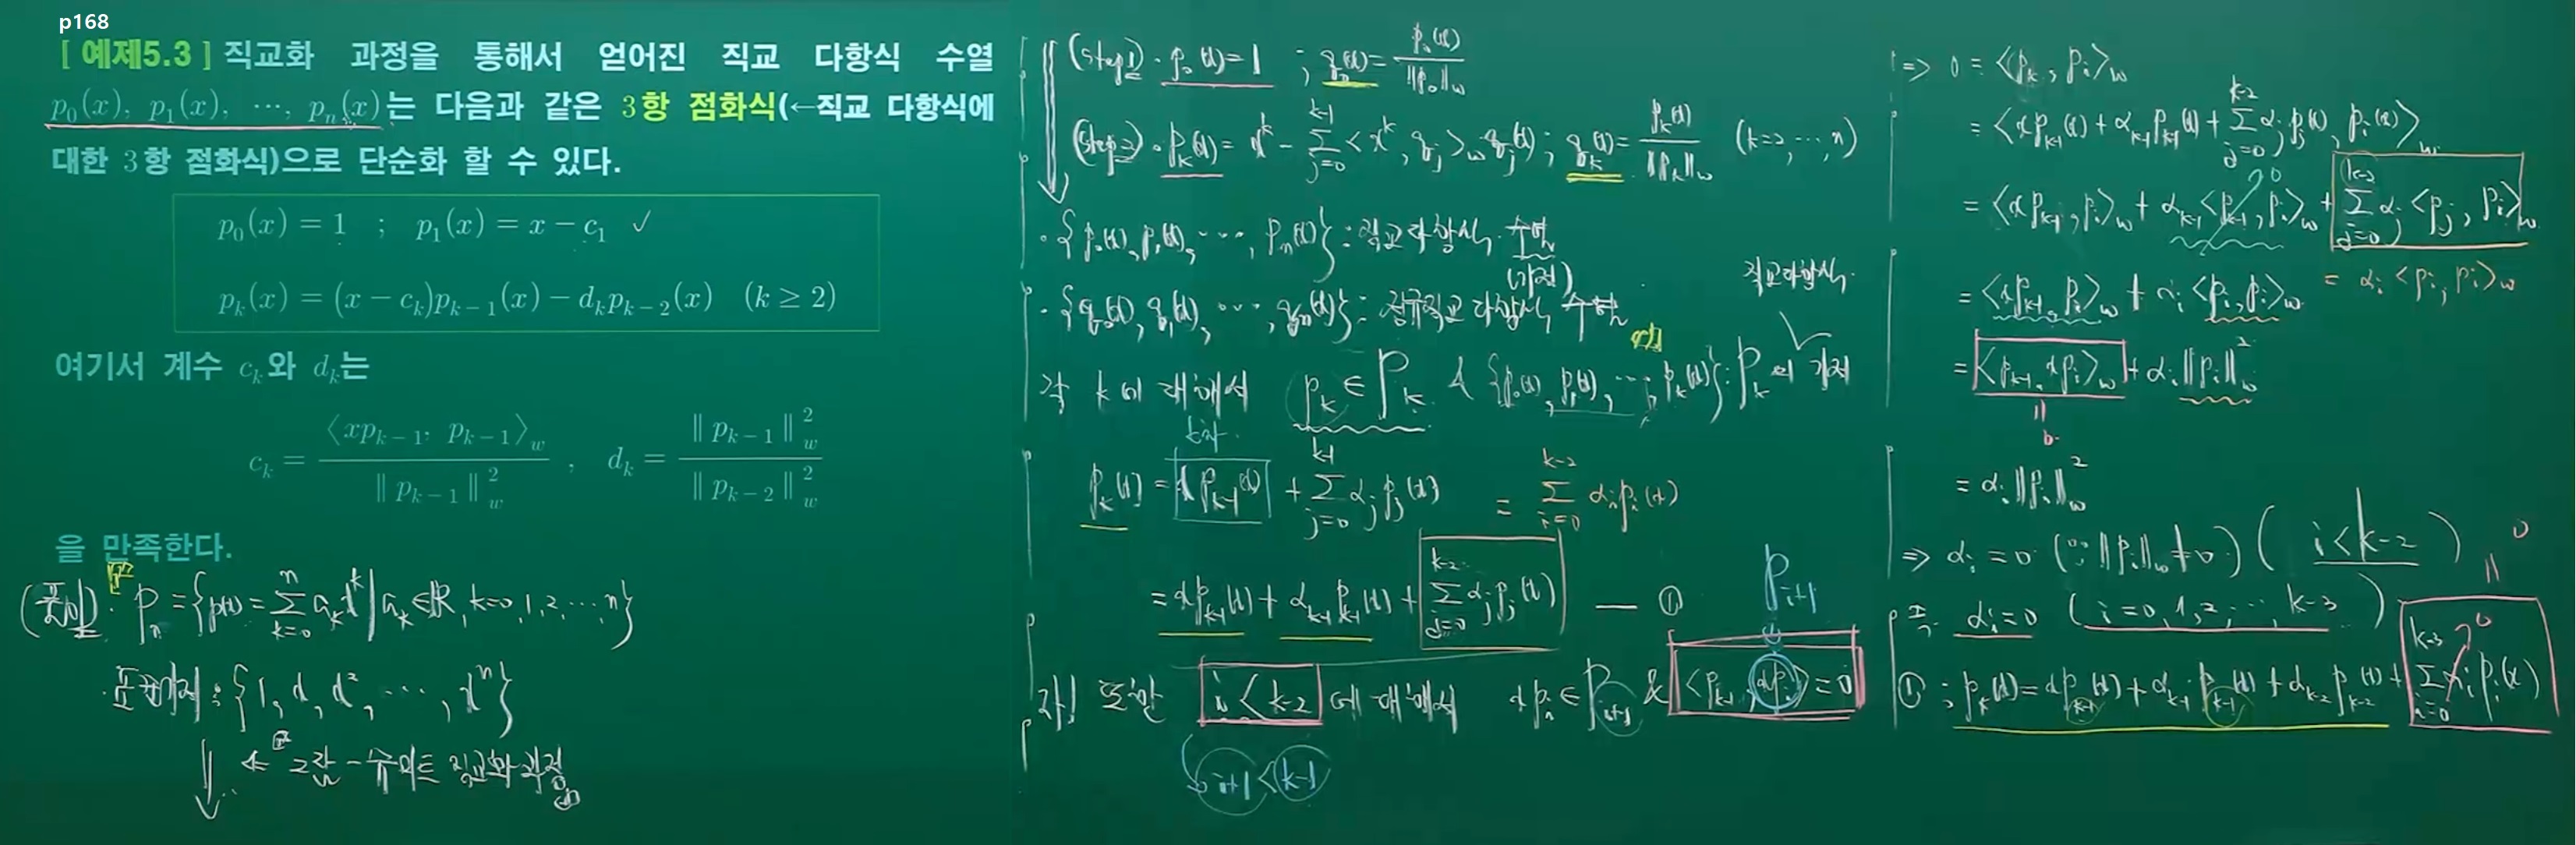 p168
[ 예제5.3 ] 직교화 과정을 통해서 얻어진 직교 다항식 수열
p_0(x), p_1(x), ⋯, p_n(x)는 다음과 같은 3항 점화식(←직교 다항식에
대한 3항 점화식)으로 단순화 할 수 있다.
p_0(x) = 1 ; p_1(x) = x − c_1 ✓
p_k(x) = (x − c_k)p_{k−1}(x) − d_k p_{k−2}(x) (k ≥ 2)
여기서 계수 c_k와 d_k는
c_k = ⟨xp_{k−1}, p_{k−1}⟩_w / ‖p_{k−1}‖_w^2 , d_k = ‖p_{k−1}‖_w^2 / ‖p_{k−2}‖_w^2
을 만족한다.
(풀이) · P_n = {p(x) = Σ_{k=0}^{n} a_k x^k | a_k ∈ ℝ, k=0, 1, 2, ⋯, n}
· 표준기저 : {1, x, x^2, ⋯, x^n}
⇓ ← 그람-슈미트 직교화 과정
(step1) · p_0(x) = 1 ; q_0(x) = p_0(x) / ‖p_0‖_w
(step2) · p_k(x) = x^k − Σ_{j=0}^{k-1} <x^k, q_j>_w q_j(x) ; q_k(x) = p_k(x) / ‖p_k‖_w (k=2, ⋯, n)
· {p_0(x), p_1(x), ⋯, p_n(x)} : 직교다항식 수열
(기저)
· {q_0(x), q_1(x), ⋯, q_n(x)} : 정규직교 다항식 수열
직교다항식
각 k에 대해서 p_k ∈ P_k & {p_0(x), p_1(x), ⋯, p_k(x)} : P_k의 기저
k차
p_k(x) = xp_{k-1}(x) + Σ_{j=0}^{k-1} α_j p_j(x) = Σ_{i=0}^{k-2} α_i p_i(x)
= xp_{k-1}(x) + α_{k-1}p_{k-1}(x) + Σ_{j=0}^{k-2} α_j p_j(x) — ①
P_{i+1}
자! 또한 i < k-2 에 대해서 xp_i ∈ P_{i+1} & <p_{k-1}, xp_i> = 0
i+1 < k-1
⇒ 0 = <p_k, p_i>_w
= <xp_{k-1}(x) + α_{k-1}p_{k-1}(x) + Σ_{j=0}^{k-2} α_j p_j(x), p_i(x)>_w
= <xp_{k-1}, p_i>_w + α_{k-1}<p_{k-1}, p_i>_w + Σ_{j=0}^{k-2} α_j <p_j, p_i>_w
0
= α_i <p_i, p_i>_w
= <xp_{k-1}, p_i>_w + α_i <p_i, p_i>_w
= <p_{k-1}, xp_i>_w + α_i ‖p_i‖_w^2
= 0
= α_i ‖p_i‖_w^2
⇒ α_i = 0 (∵ ‖p_i‖_w ≠ 0) ( i < k-2 )
즉 α_i = 0 ( i = 0, 1, 2, ⋯, k-3 )
= 0
① ; p_k(x) = xp_{k-1}(x) + α_{k-1}p_{k-1}(x) + α_{k-2}p_{k-2}(x) + Σ_{i=0}^{k-3} α_i p_i(x)
0